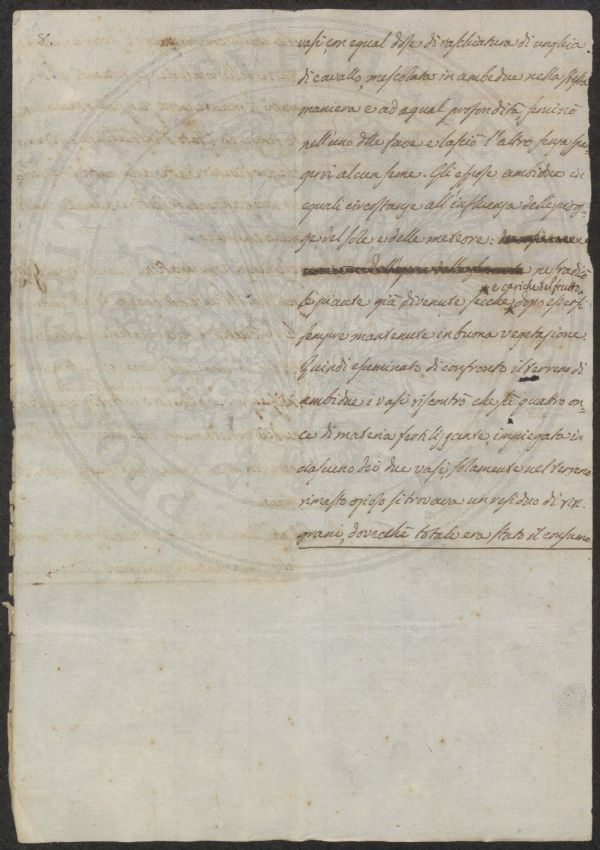 8.
vasi, con equal dose di raschiatura di unghia
di cavallo, mescolata in ambedue nella stessa
maniera e ad equal profondità seminò
nell'uno delle fave e lasciò l'altro senza spar
gervi alcun seme. Gli espose ambidue in
equali circostanze all'influenza delle piog
ge del sole, e delle meteore: ne sradicò
e cariche del frutto,
le piante già divenute secche dopo essersi
sempre mantenute in buona vegetazione.
Quindi esaminato di confronto il terreno di
ambidue i vasi riscontrò che di quattro on
ce di materia fertilizzante, impiegata in
ciascuno dei due vasi, solamente nel terreno
rimasto ozioso si trovava un residuo di
grani, dovechè totale era stato il consumo